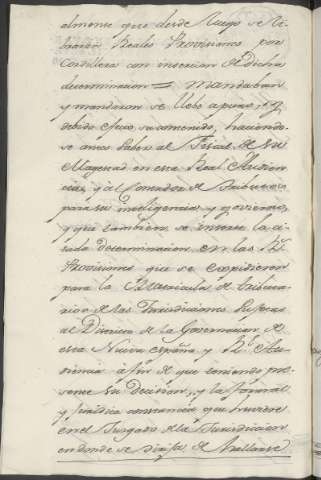 almente que desde luego se li
braran Reales Provisiones por
Cordillera con insercion de dicha
determinacion = Mandaban
y mandaron se llebe a pura, y
debido efecto su contenido, haciendo
se antes saber al Fiscal de Su
Magestad en esta Real Audien
cia, y al Contador de tributos
para su inteligencia, y govierno,
y que tambien se inserte la ci
tada determinacion en las Rs.
Provisiones que se expidieren
para la Matricula de tributa
rios de las Jurisdiciones sugetas
al Distrito de la Governacion de
esta Nueva España, y Rl. Au
diencia a fin de que teniendo pre
sente su decision, y la formal
y juridica constancia que huviere
en el Juzgado de la Jurisdiccion
en donde se diga de hallarse